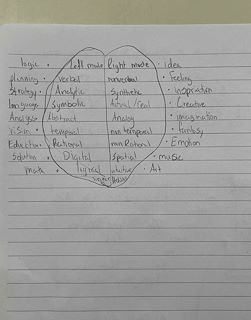 logic • left mode Right mode • idea
planning • verbal nonverbal • Feeling
Strategy • Analytic Synthetic • inspiration
Language Symbolic Actual / real • Creative
Analysis Abstract Analog • imagination
Vision • temporal non temporal • fantasy
Education • Rational non Rational • Emotion
Solution • Digital Spatial • music
math • logical intuitive • Art